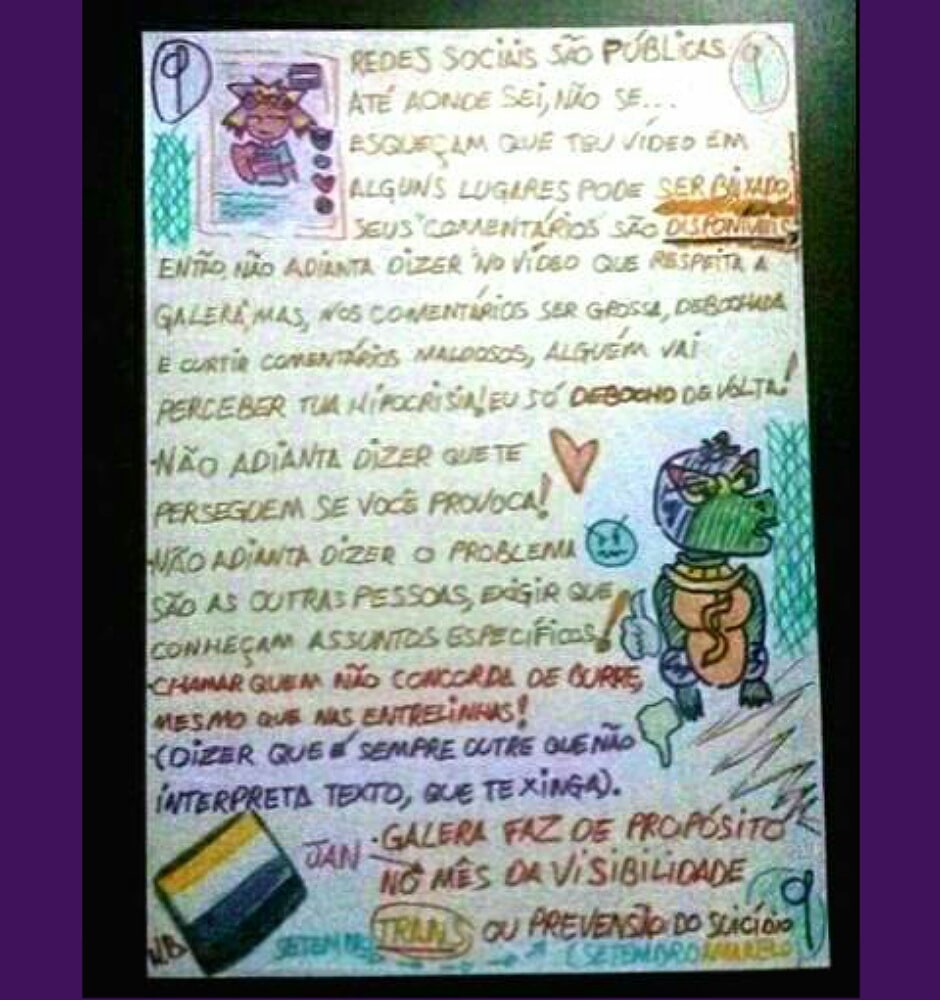 9
9
REDES SOCIAIS SÃO PÚBLICAS
ATÉ AONDE SEI, NÃO SE...
ESQUEÇAM QUE TEU VÍDEO EM
ALGUNS LUGARES PODE SER BAIXADO,
SEUS COMENTÁRIOS SÃO DISPONÍVEIS
ENTÃO, NÃO ADIANTA DIZER NO VÍDEO QUE RESPEITA A
GALERA, MAS, NOS COMENTÁRIOS SER GROSSA, DEBOCHADA
E CURTIR COMENTÁRIOS MALDOSOS, ALGUÉM VAI
PERCEBER TUA HIPOCRISIA! EU SÓ DEBOCHO DE VOLTA!
NÃO ADIANTA DIZER QUE TE
PERSEGUEM SE VOCÊ PROVOCA!
NÃO ADIANTA DIZER O PROBLEMA
SÃO AS OUTRAS PESSOAS, EXIGIR QUE
CONHEÇAM ASSUNTOS ESPECÍFICOS!
CHAMAR QUEM NÃO CONCORDA DE BURRE,
MESMO QUE NAS ENTRELINHAS!
(DIZER QUE É SEMPRE OUTRE QUE NÃO
INTERPRETA TEXTO, QUE TE XINGA).
JAN
• GALERA FAZ DE PROPÓSITO
NO MÊS DA VISIBILIDADE
TRANS OU PREVENSÃO DO SUICÍDIO
(SETEMBRO AMARELO)
9